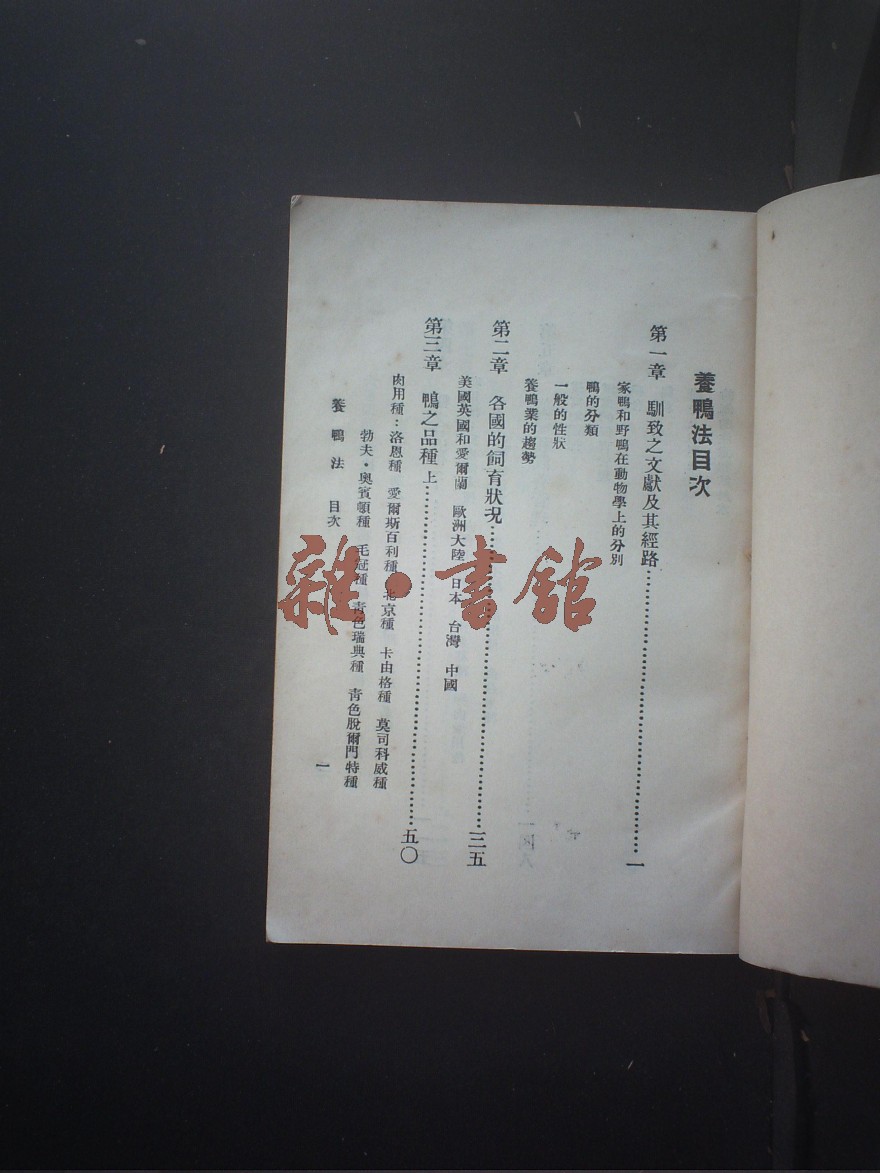 養鴨法目次
第一章 馴致之文獻及其經路……一
家鴨和野鴨在動物學上的分別
鴨的分類
一般的性狀
養鴨業的趨勢
第二章 各國的飼育狀况……三五
美國英國和愛爾蘭 歐洲大陸 日本 台灣 中國
第三章 鴨之品種上……五〇
肉用種：洛恩種 愛爾斯百利種 北京種 卡由格種 莫司科威種
勃夫・奧賓頓種 毛冠種 青色瑞典種 青色脫爾門特種
養鴨法 目次
一
雜・書館